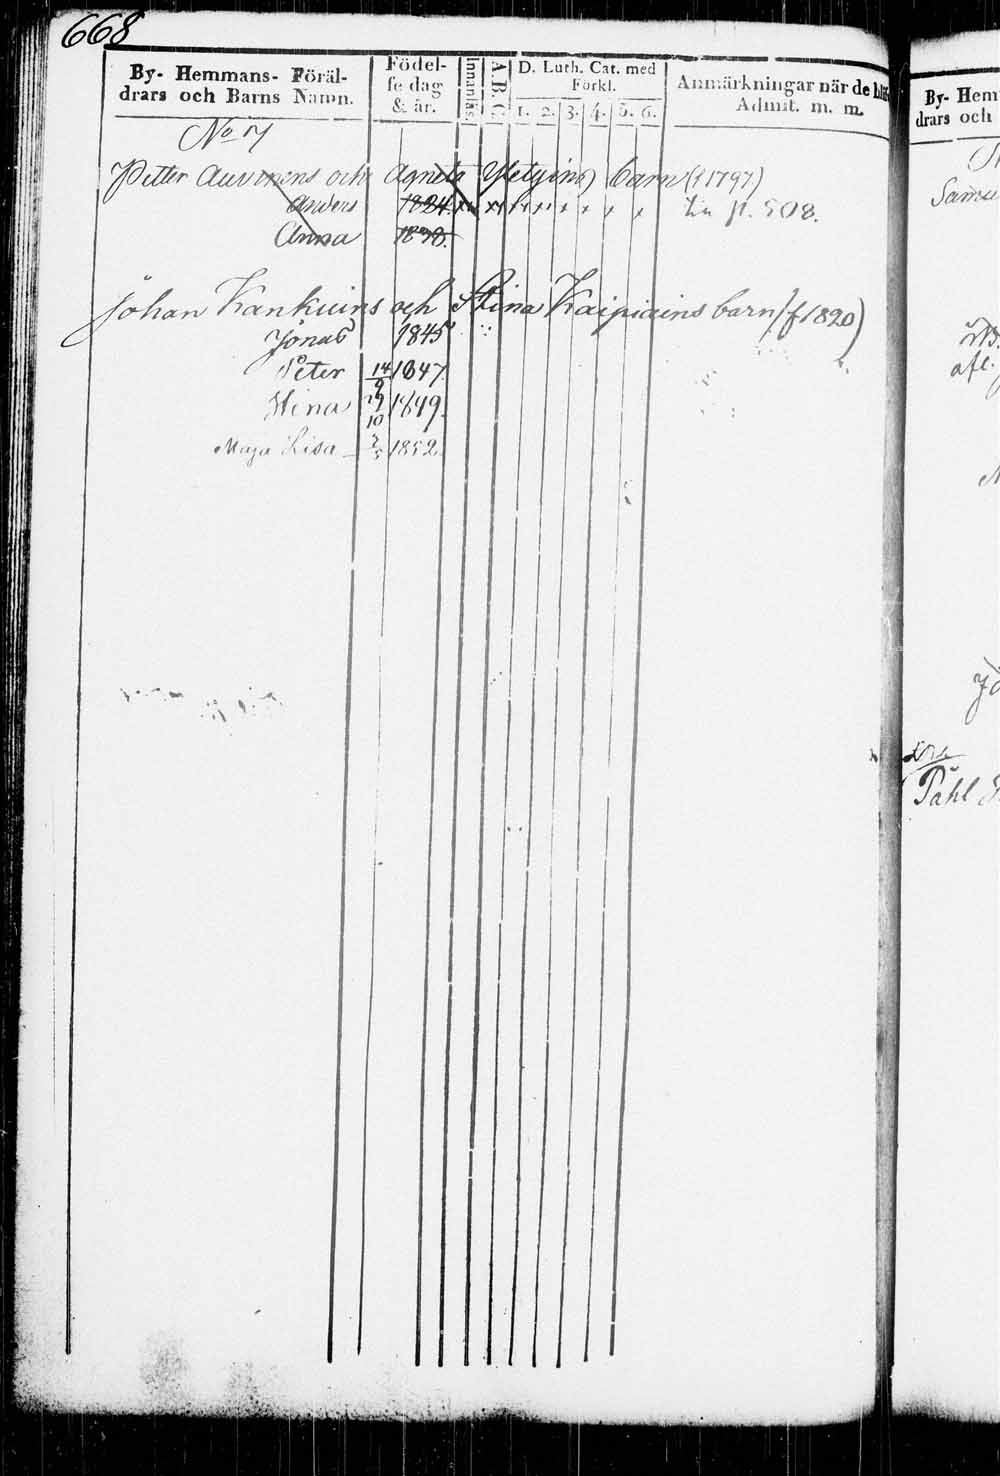 668
By- Hemmans- Föräl-
drars och Barns Namn.
Födel-
se dag
& år.
Innanläs
A.B.C.
D. Luth. Cat. med
Förkl.
1. 2. 3. 4. 5. 6.
Anmärkningar när de
Admit. m. m.
No 17
Petter Auvinens och Agneta barn (f 1797)
Anders 1834. x x x x x x x x p. 508.
Anna 1838.
Johan Kankuins och Stina Kaipiains barn (f 1820)
Jonas 1845
Peter 14/9 1847
Stina 29/10 1849.
Maja Lisa 1852.
By- Hem
drars och
Samu
afl.
Påhl